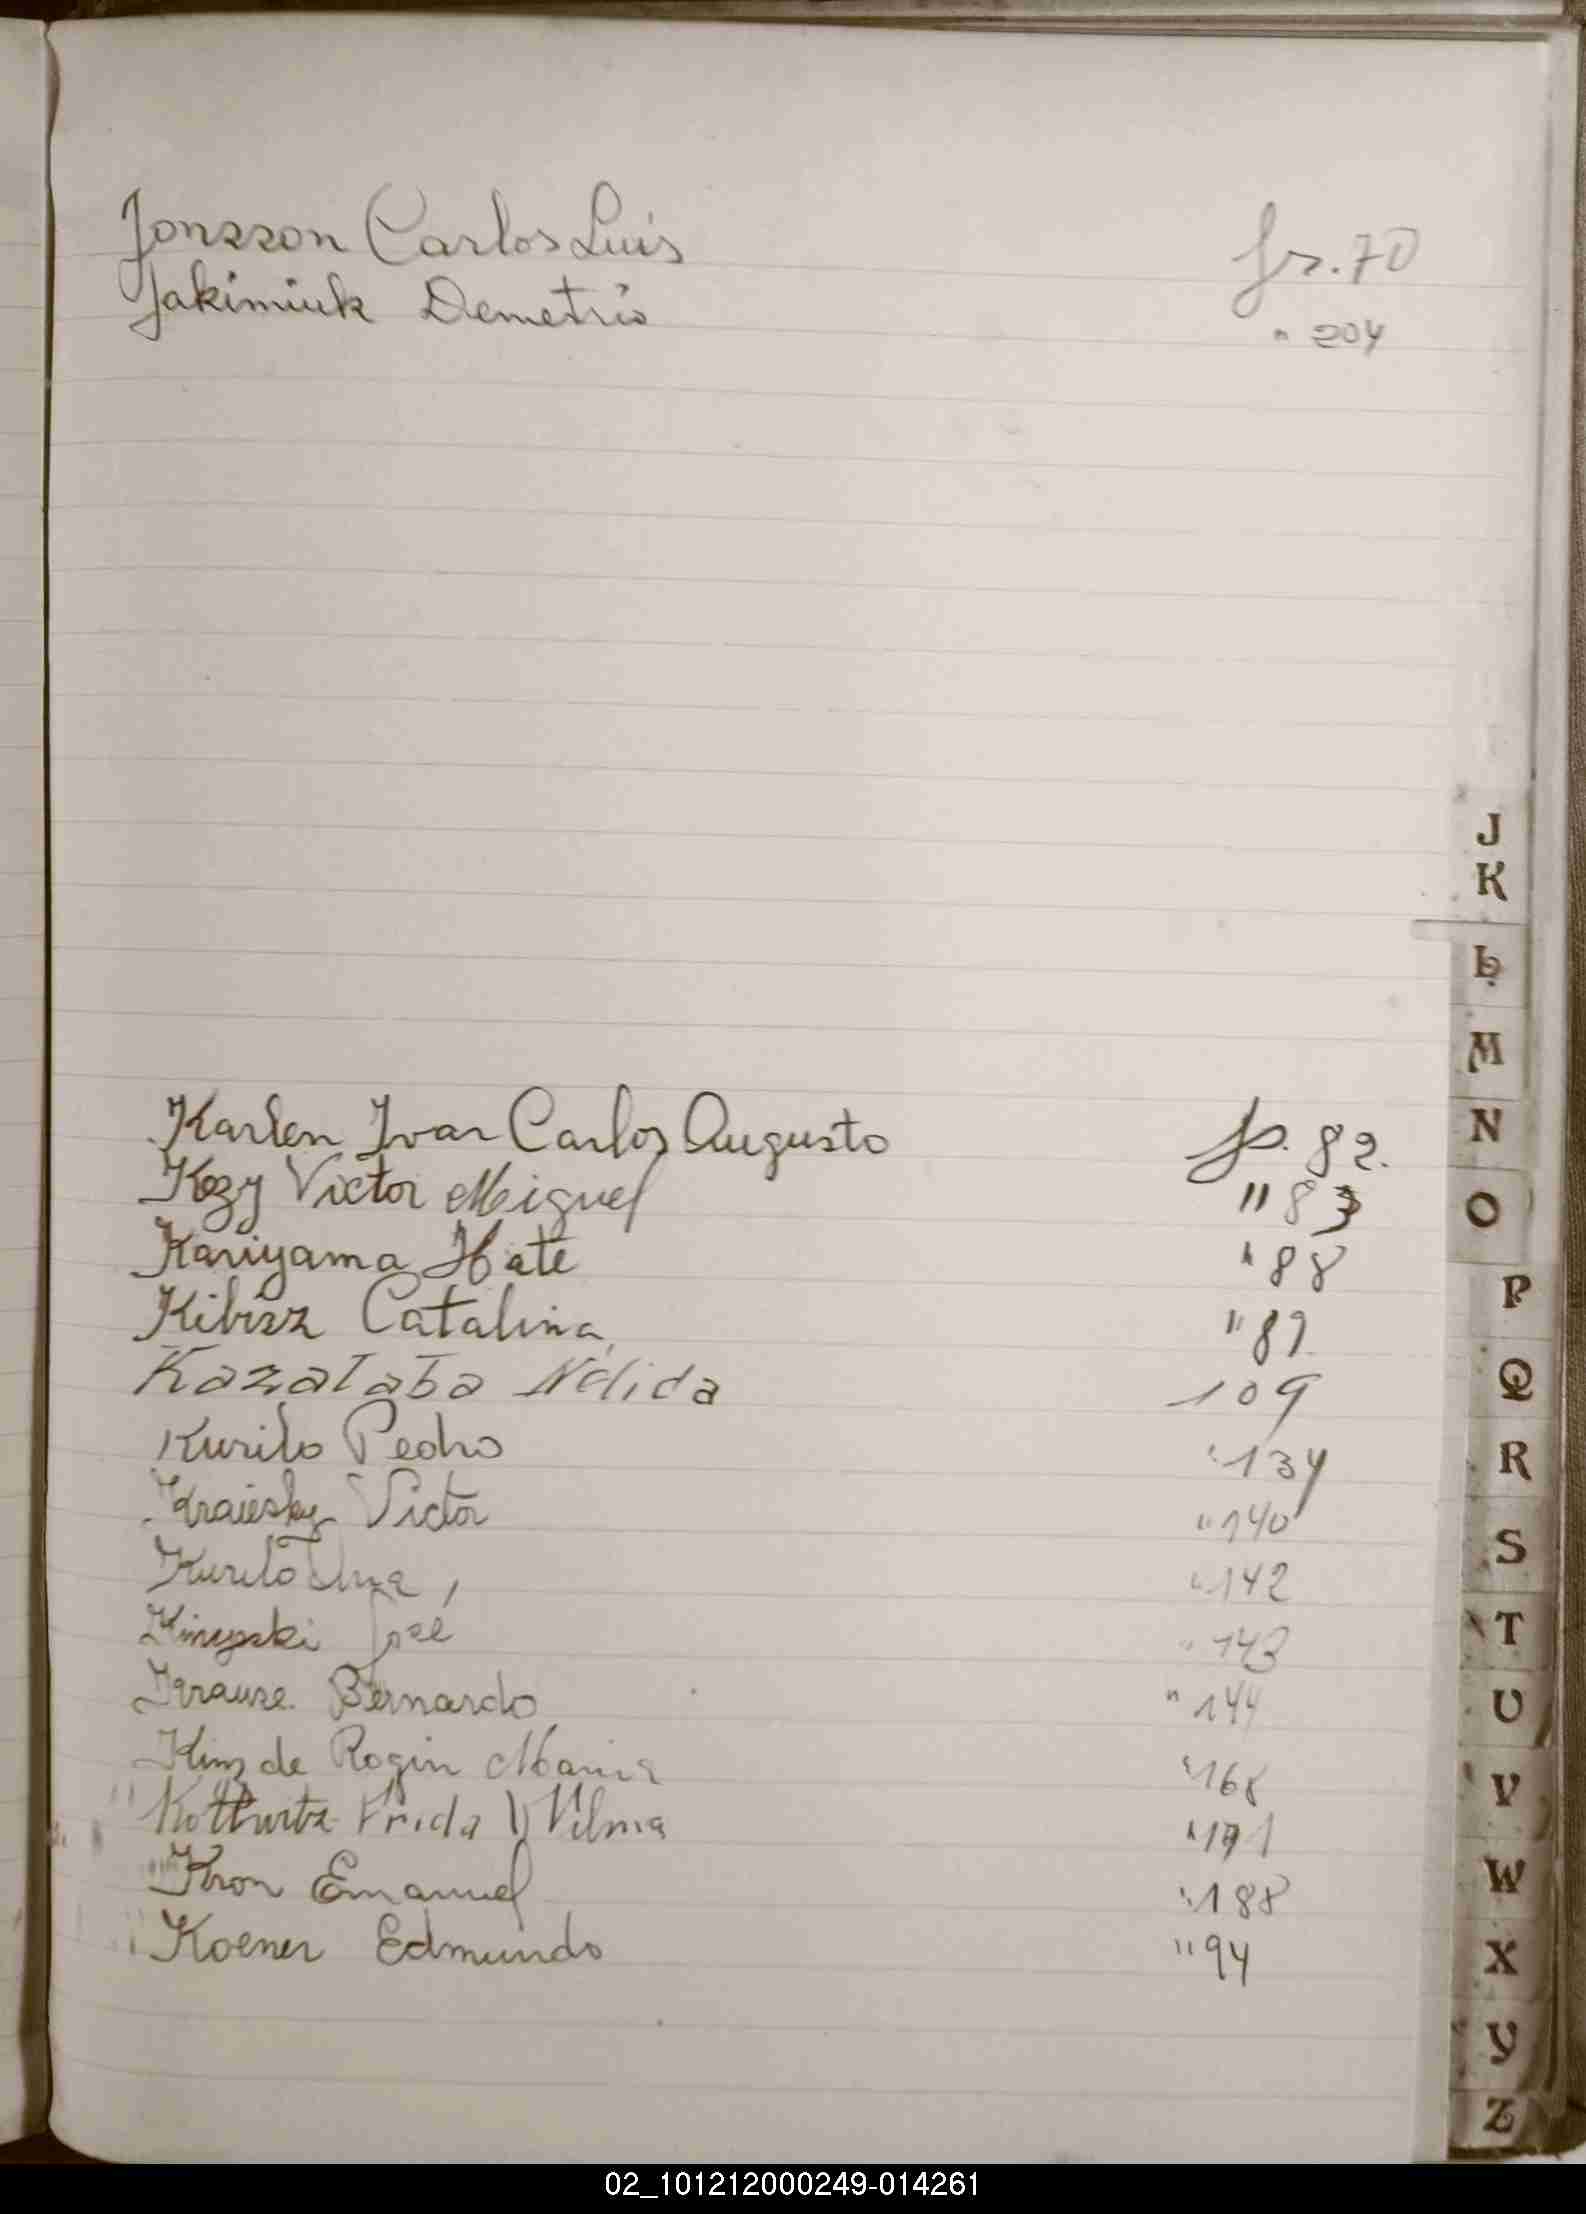 Jonsson Carlos Luis fs. 70
Jakimiuk Demetrio " 204
J
K
L
M
N
O
P
Q
R
S
T
U
V
W
X
Y
Z
Karlen Ivar Carlos Augusto fs. 82.
Kozy Victor Miguel " 83
Kariyama Hate " 88
Kibisz Catalina " 89
Kazalaba Nélida 109
Kurilo Pedro " 134
Kraiesky Victor " 140
Kurilo " 142
José " 143
Krause Bernardo " 144
de Rogin Maria " 168
Frida V Vilma " 171
Kron Emanuel " 188
Koener Edmundo " 94
02_101212000249-014261